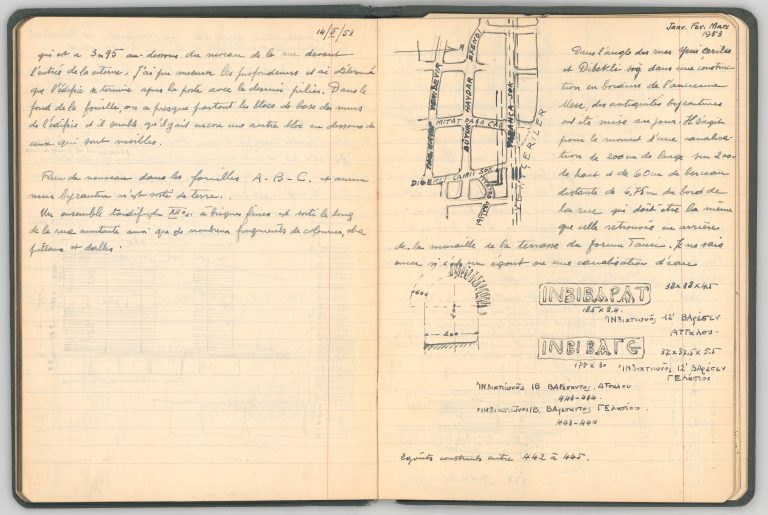 14/II/53
qui est a 3m95 au-dessous du niveau de la rue devant
l'entrée de la citerne. J'ai pu mesurer les profondeurs et ai déterminé
que l'édifice se termine apres la porte avec le dernier pilier. Dans le
fond de la fouille, on a presque partout les blocs de base des murs
de l'édifice et il semble qu'il y ait encore un autre bloc au dessous de
ceux qui sont visibles.
Rien de nouveau dans les fouilles A-B-C. et aucun
mur byzantin n'est sorti de terre.
Un ensemble tardif du XII e s. a briques fines est sorti le long
de la rue montante ainsi que de nombreux fragments de colonnes, cha
piteaux et dalles.
Janv. Fev. Mars
1953
YENI DEVIR
BÜYÜK HAYDAR EFENDI
MITAT PAŞA CAD
YABANCA SOK
VEZNECILER
CAMII SOK
Dans l'angle des rues
et Dibekli soq dans une construc
tion en bordure de l'ancienne
Mese, des antiquites byzantines
ont ete mise au jour. Il s'agit
pour le moment d'une canalisa-
tion de 200 cm de large sur 200
de haut et de 60 cm de berceau
distante de 4,75m du bord de
la rue qui doit être la même
que celle retrouvée en arrière
de la muraille de la terrasse du forum Tauri. Je ne sais
encore si c'est un égout ou une canalisation d'eau
200
INBIBAPAT
38x38x4.5
Ἰνδικτιωνός ΙΒ' Βαρέσεν
Ατταλου.
INBIBATG
37x37.5x5.5
175 x 30
Ἰνδικτιωνός ΙΒ' Βαρέσεν
Γελασίου
Ἰνδικτιωνός ΙΒ Βαρεσαντος Ατταλου
443-444.
Ἰνδικτιωνός ΙΒ. Βαρεσαντος Γελασίου.
443-444
Egoûts construits entre 442 à 445.